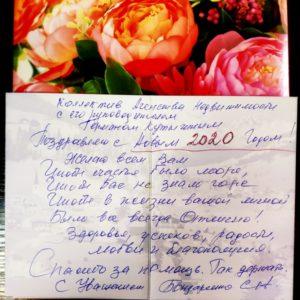 Коллектив Агенства Недвижимости
с его руководителем
Германом
Поздравляю с Новым 2020 Годом!
Желаю всем Вам
Чтоб счастья было море,
Чтоб Вас не знало горе
Чтоб в жизни вашей личной
Было все всегда Отлично!
Здоровья, успехов, радости,
любви и благополучия.
Спасибо за помощь. Так держать
С Уважением Бондаренко С.Н